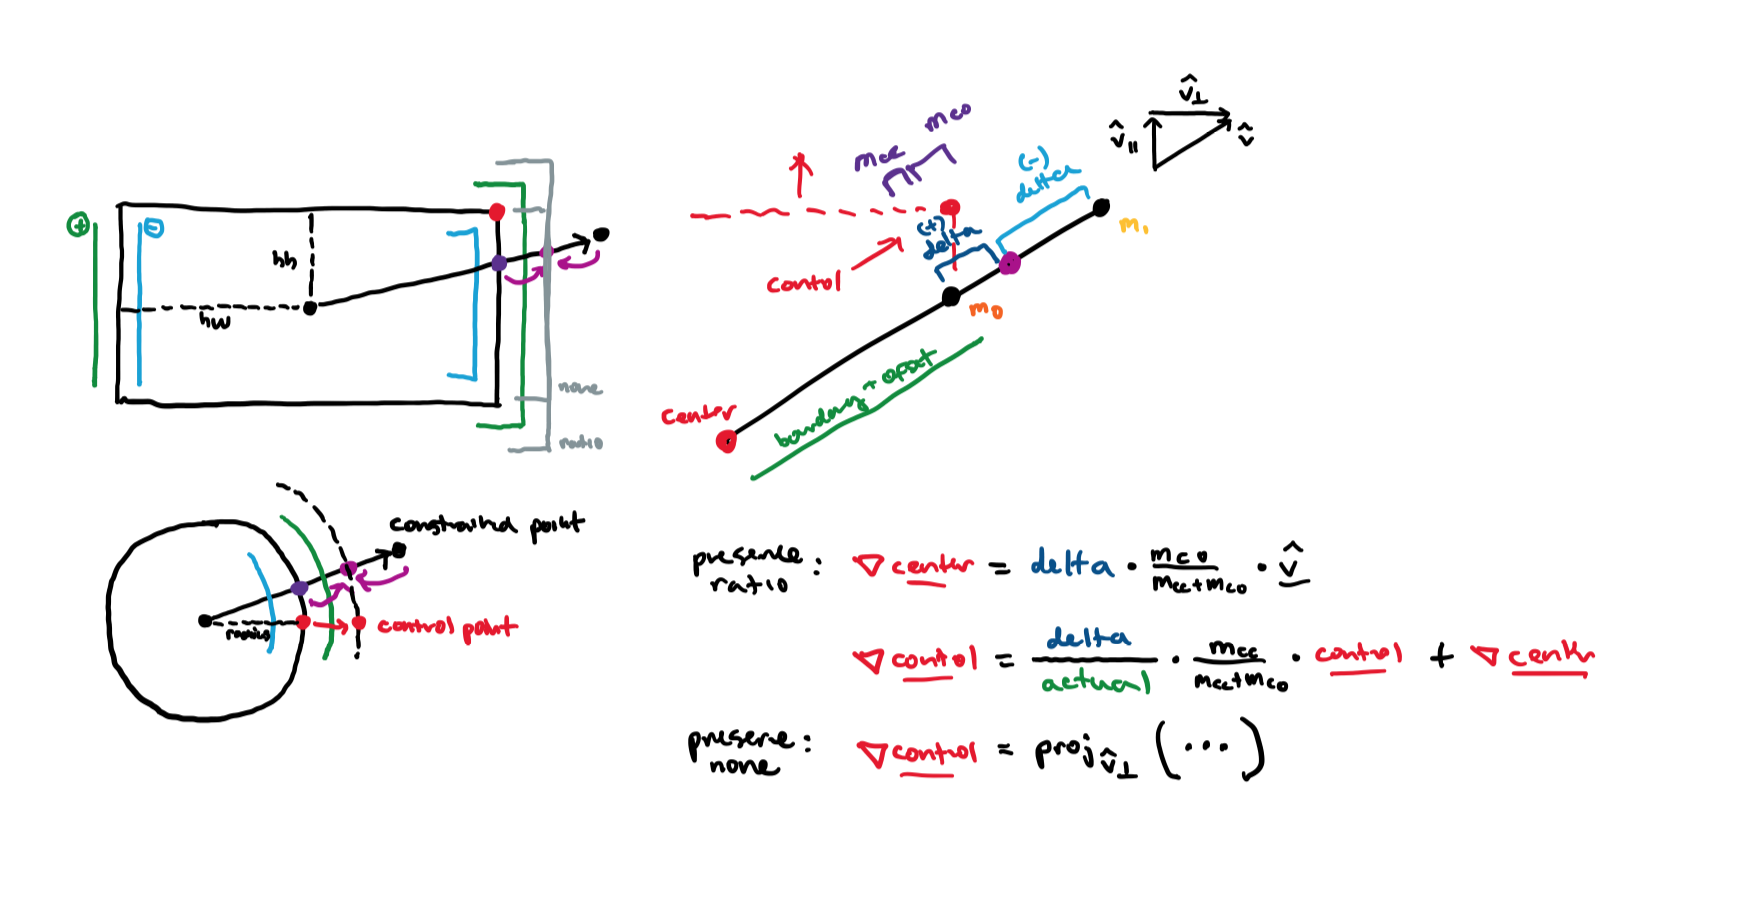 ⊕
⊖
hh
hw
none
ratio
radius
constrained point
control point
mcc
mco
(-)
delta
(+)
delta
contol
m₁
m₀
center
boundary + offset
v̂⊥
v̂∥
v̂
preserve ratio : ∇center = delta · mco / mcc+mco · v̂
∇contol = delta / actual · mcc / mcc+mco · control + ∇center
preserve none : ∇control = proj v̂⊥ (···)